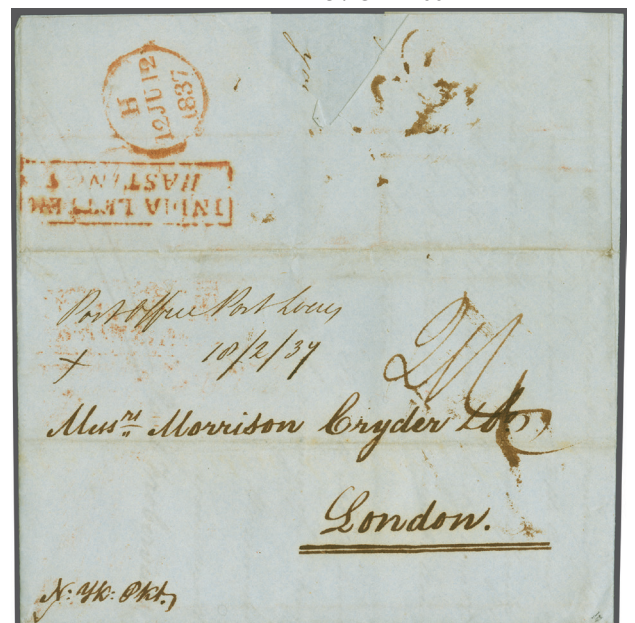 H
12 JU 12
1837
INDIA LETTER
HASTINGS
Post Office Port Louis
18/2/37
Mess^rs Morrison Cryder & Co.
London.
N: Yk: Pkt,